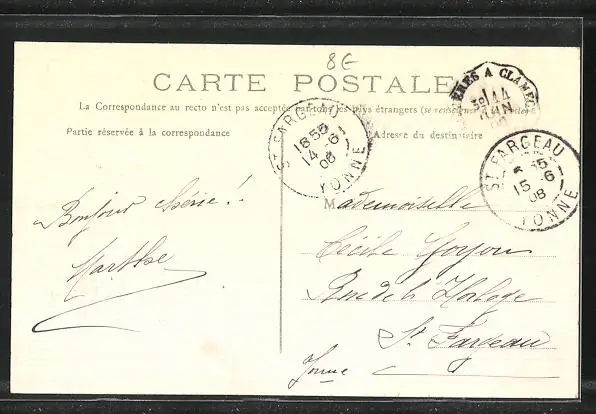 8€
CARTE POSTALE
La Correspondance au recto n'est pas acceptée par tous les pays étrangers (se renseigner à la Poste)
Partie réservée à la correspondance
Adresse du destinataire
ST FARGEAU
1855
14 -6
08
YONNE
A CLAMEC
14
JUIN
ST FARGEAU
15 -6
08
YONNE
Bonjour
Marthe
Mademoiselle
Cécile
Rue de l'Horloge
St Fargeau
Yonne